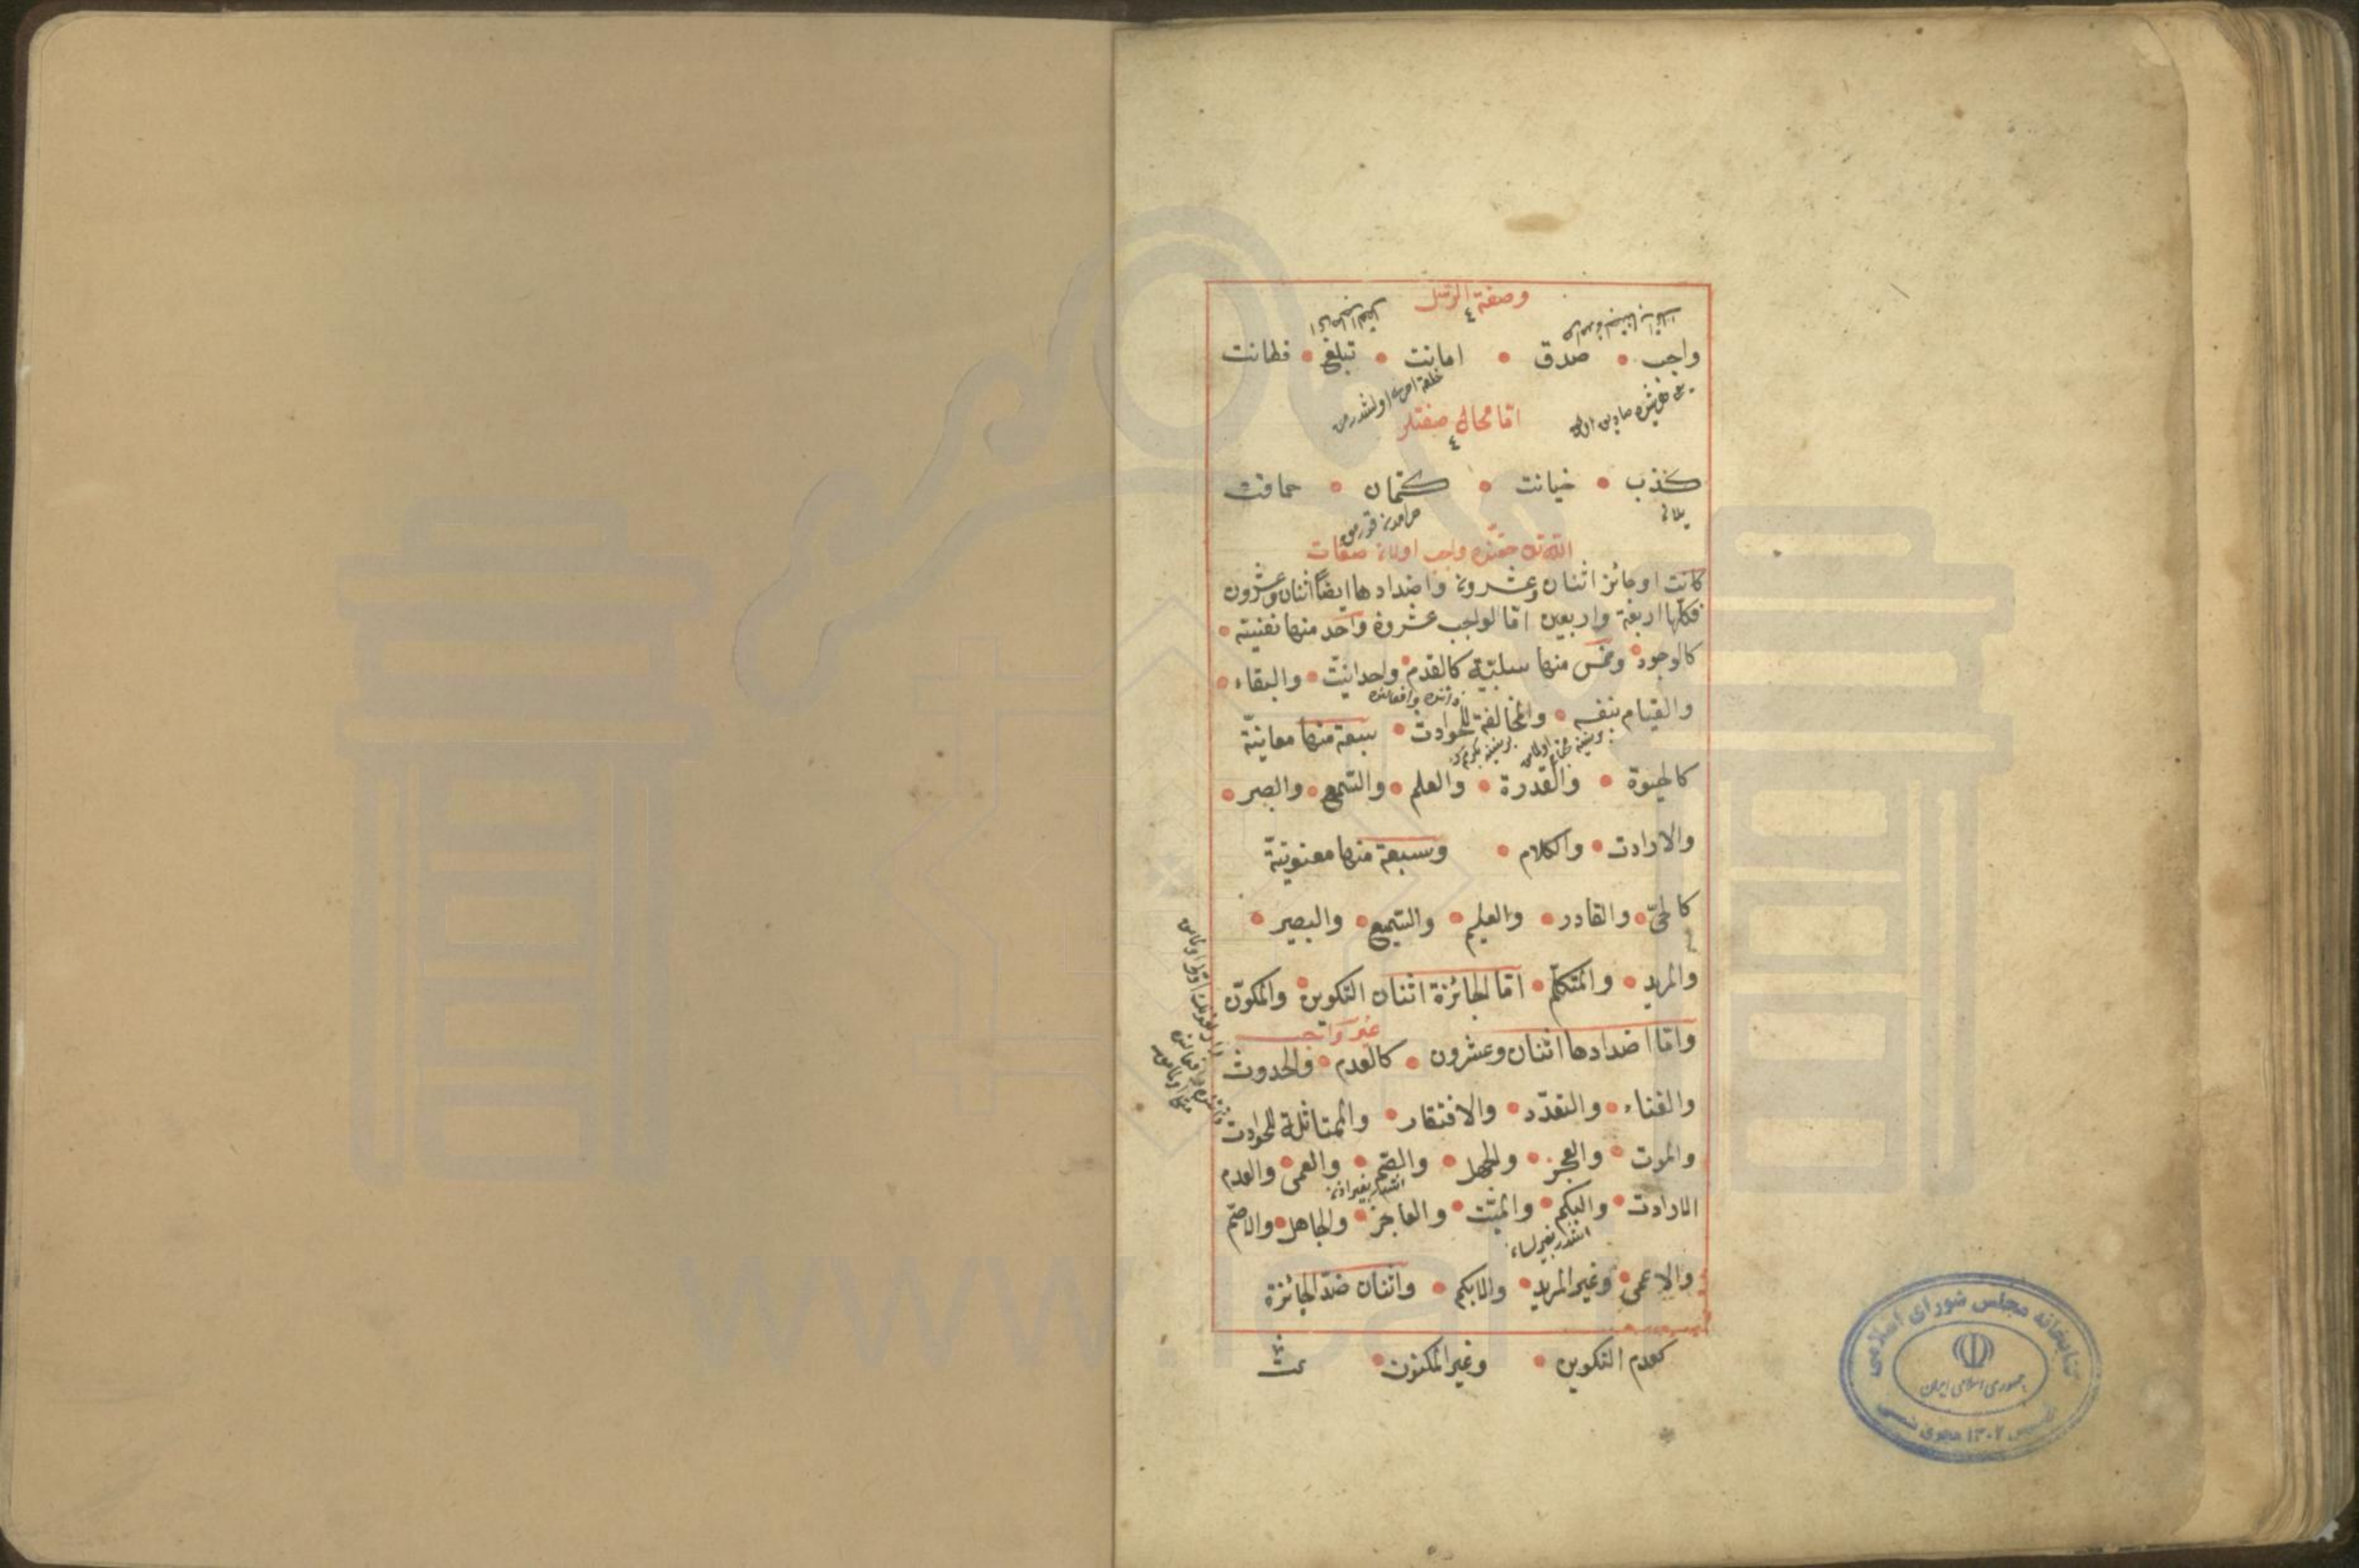 وصفة الرسل
٤
واجب صدق امانت تبلغ فطانت
اما محال صفتلر
٤
كذب خيانت كتمان حماقت
يلان
الله نك حقنده واجب اولان صفات
كانت او جائز اثنان وعشرون واضدادها ايضاً اثنان وعشرون
فكلها اربعة واربعين اما الواجب عشرون واحد منها نفسية
كالوجود وخمس منها سلبية كالقدم واحدانيت والبقاء
ذاتنده وافعالنده
والقيام بنفسه والمخالفة للحوادث سبعة منها معانية
كالحيوة والقدرة والعلم والسمع والبصر
والارادت والكلام وسبعة منها معنوية
كالحىّ والقادر والعليم والسميع والبصير
والمريد والمتكلم اما الجائزة اثنان التكوين والمكوّن
غير واجب
واما اضدادها اثنان وعشرون كالعدم والحدوث
والفناء والتعدّد والافتقار والممتاثلة للحوادث
والموت والعجز والجهل والصم والعمى والعدم
الارادت والبكم والميّت والعاجز والجاهل والاصم
والاعمى وغير المريد والابكم واثنان ضدّ الجائزة
كعدم التكوين وغير المكنون تمت
كتابخانه مجلس شورای اسلامی
جمهوری اسلامی ایران
تأسيس ١٣٠٢ هجری شمسی